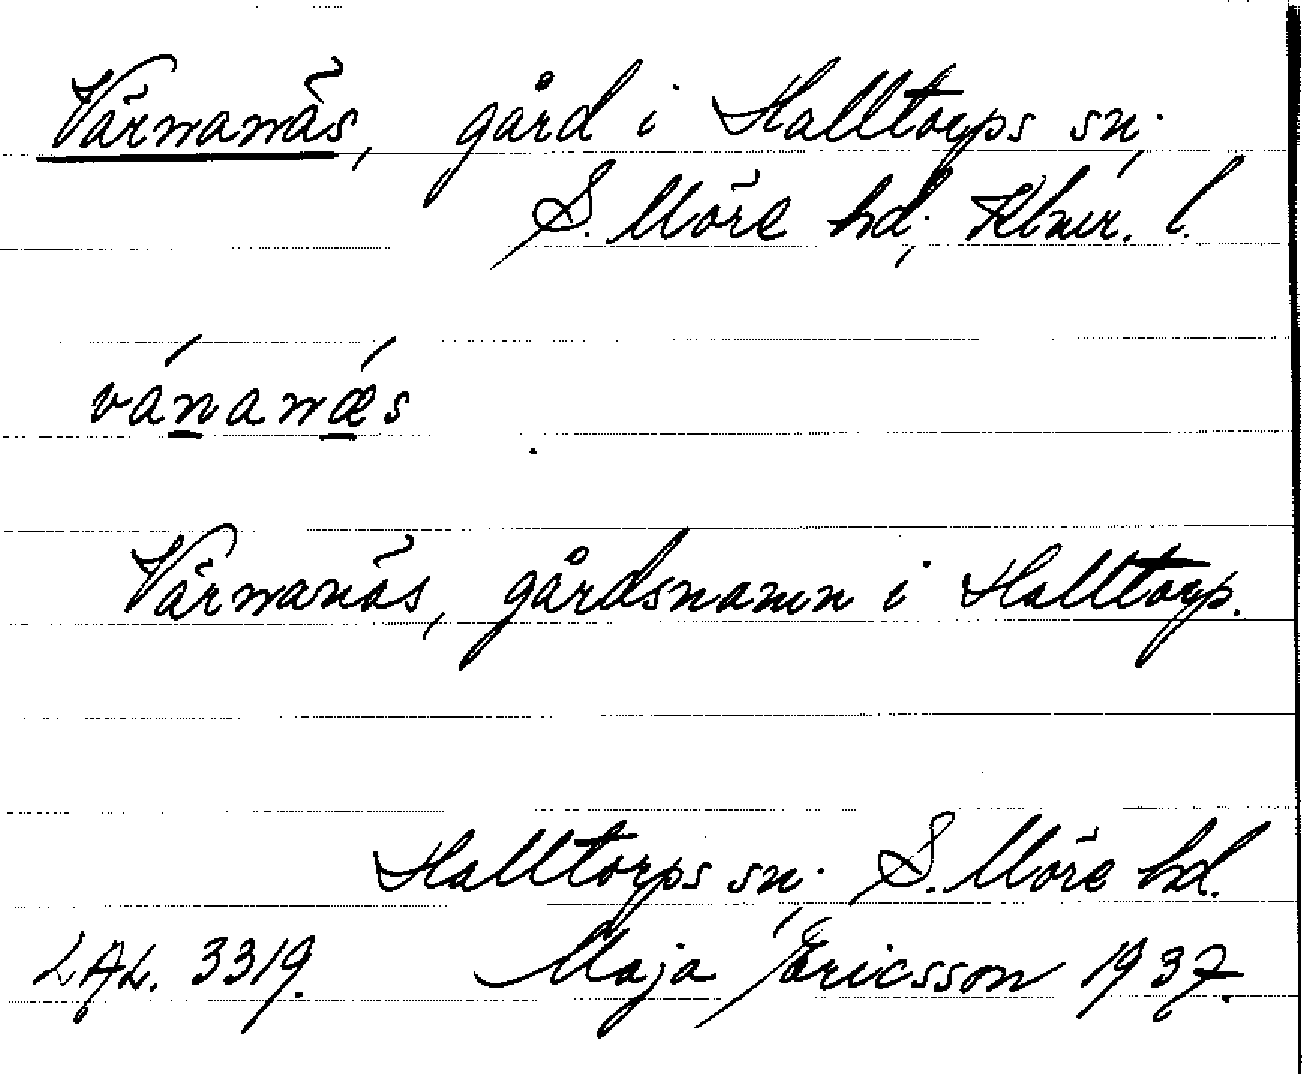 Värnanäs, gård i Halltorps sn,
S. Möre hd, Klmr. l.
vánanǽs
Värnanäs, gårdsnamn i Halltorp.
Halltorps sn, S. Möre hd.
LAL. 3319. Maja Ericsson 1937.